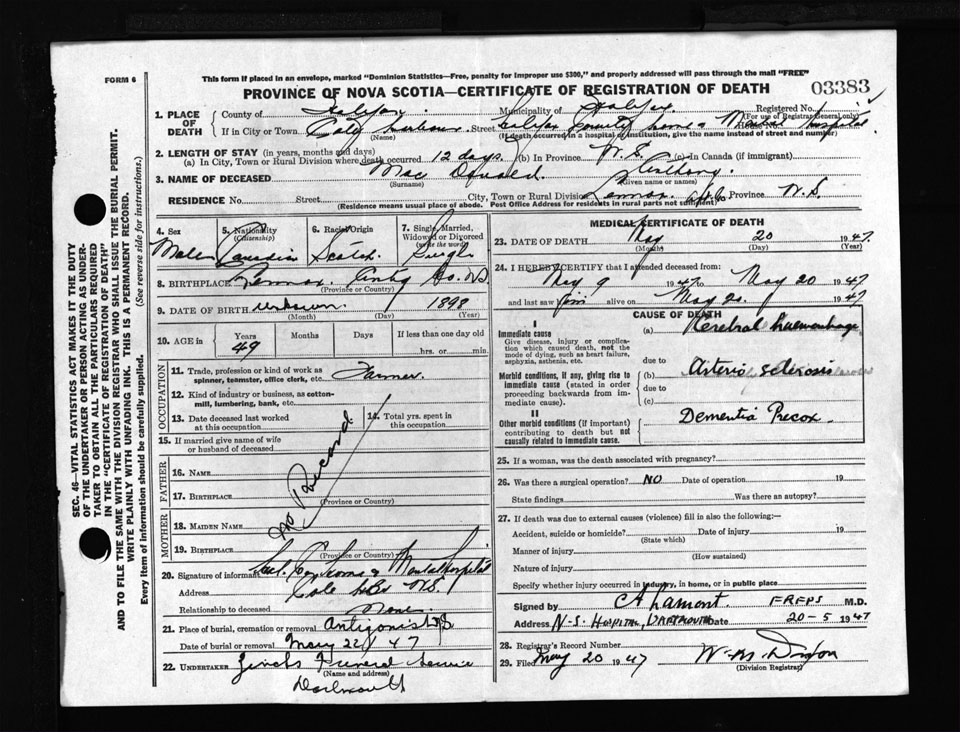 FORM 6
This form if placed in an envelope, marked "Dominion Statistics—Free, penalty for improper use $300," and properly addressed will pass through the mail "FREE"
PROVINCE OF NOVA SCOTIA—CERTIFICATE OF REGISTRATION OF DEATH
03383
1. PLACE OF DEATH
County of Halifax Municipality of Halifax Registered No.
(For use of Registrar General only)
If in City or Town Cole Harbour Street Halifax County Home & Mental Hospital
(Name) (If death occurred in a hospital or institution, give the name instead of street and number)
2. LENGTH OF STAY (in years, months and days)
(a) In City, Town or Rural Division where death occurred 12 days (b) in Province N.S. (c) in Canada (if immigrant)
3. NAME OF DECEASED Mac Donald Anthony
(Surname) (Given name or names)
RESIDENCE No. Street City, Town or Rural Division Lennox Province N.S.
(Residence means usual place of abode. Post Office Address for residents in rural parts not sufficient)
4. Sex Male
5. Nationality (Citizenship) Canadian
6. Racial Origin Scotch
7. Single, Married, Widowed or Divorced (write the word) Single
8. BIRTHPLACE Lennox Co. N.S.
(Province or Country)
9. DATE OF BIRTH unknown 1898
(Month) (Day) (Year)
10. AGE in Years 49 Months Days If less than one day old hrs. or min.
OCCUPATION
11. Trade, profession or kind of work as spinner, teamster, office clerk, etc. Farmer
12. Kind of industry or business, as cotton-mill, lumbering, bank, etc.
13. Date deceased last worked at this occupation
14. Total yrs. spent in this occupation
15. If married give name of wife or husband of deceased
FATHER
16. NAME
17. BIRTHPLACE
(Province or Country)
MOTHER
18. MAIDEN NAME
19. BIRTHPLACE
(Province or Country)
No Record
20. Signature of informant Co. Home & Mental Hospital
Address Cole Hbr N.S.
Relationship to deceased None
21. Place of burial, cremation or removal Antigonish N.S.
Date of burial or removal May 22 / 47
22. UNDERTAKER Zincks Funeral Service
(Name and address)
Dartmouth
MEDICAL CERTIFICATE OF DEATH
23. DATE OF DEATH May 20 1947
(Month) (Day)
24. I HEREBY CERTIFY that I attended deceased from
May 9 1947 to May 20 1947
and last saw him alive on May 20 1947
CAUSE OF DEATH
I
Immediate cause
Give disease, injury or complication which caused death, not the mode of dying, such as heart failure, asphyxia, asthenia, etc.
(a) Cerebral haemorrhage
due to
Morbid conditions, if any, giving rise to immediate cause (stated in order proceeding backwards from immediate cause).
(b) Arterio sclerosis
due to
(c)
II
Other morbid conditions (if important) contributing to death but not causally related to immediate cause.
Dementia Precox
25. If a woman, was the death associated with pregnancy?
26. Was there a surgical operation? NO Date of operation 19
State findings Was there an autopsy?
27. If death was due to external causes (violence) fill in also the following:—
Accident, suicide or homicide? Date of injury 19
(State which)
Manner of injury
(How sustained)
Nature of injury
Specify whether injury occurred in industry, in home, or in public place
Signed by C A Lamont M.D.
Address N-S. HOSPITAL, DARTMOUTH Date 20-5 1947
28. Registrar's Record Number
29. Filed May 20 1947 W. M. Dixon
(Division Registrar)
SEC. 46—VITAL STATISTICS ACT MAKES IT THE DUTY
OF THE UNDERTAKER OR PERSON ACTING AS UNDER-
TAKER TO OBTAIN ALL THE PARTICULARS REQUIRED
IN THE "CERTIFICATE OF REGISTRATION OF DEATH"
AND TO FILE THE SAME WITH THE DIVISION REGISTRAR WHO SHALL ISSUE THE BURIAL PERMIT.
WRITE PLAINLY WITH UNFADING INK. THIS IS A PERMANENT RECORD.
Every item of information should be carefully supplied. (See reverse side for instructions.)